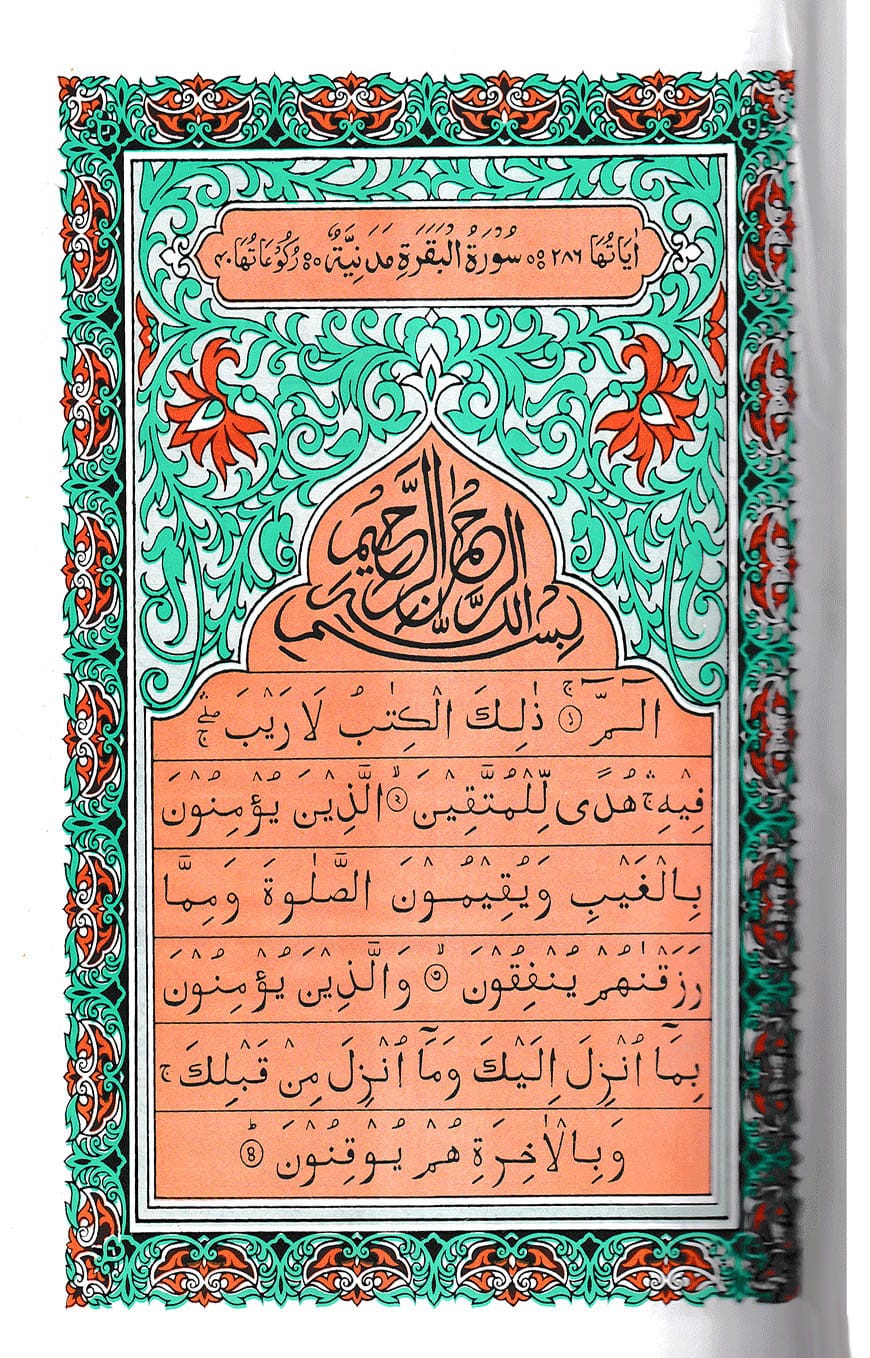 اٰيَاتُهَا ٢٨٦ سُوْرَةُ الْبَقَرَةِ مَدَنِيَّةٌ رُكُوْعَاتُهَا ۴۰
بِسْمِ اللّٰهِ الرَّحْمٰنِ الرَّحِيْمِ
الٓمّٓ ۚ﴿١﴾ ذٰلِكَ الْكِتٰبُ لَا رَيْبَ ۛۖۚ
فِيْهِ ۛۚ هُدًى لِّلْمُتَّقِيْنَ ۙ﴿٢﴾ الَّذِيْنَ يُؤْمِنُوْنَ
بِالْغَيْبِ وَيُقِيْمُوْنَ الصَّلٰوةَ وَمِمَّا
رَزَقْنٰهُمْ يُنْفِقُوْنَ ۙ﴿٣﴾ وَالَّذِيْنَ يُؤْمِنُوْنَ
بِمَآ اُنْزِلَ اِلَيْكَ وَمَآ اُنْزِلَ مِنْ قَبْلِكَ ۚ
وَبِالْاٰخِرَةِ هُمْ يُوْقِنُوْنَ ؕ﴿۴﴾